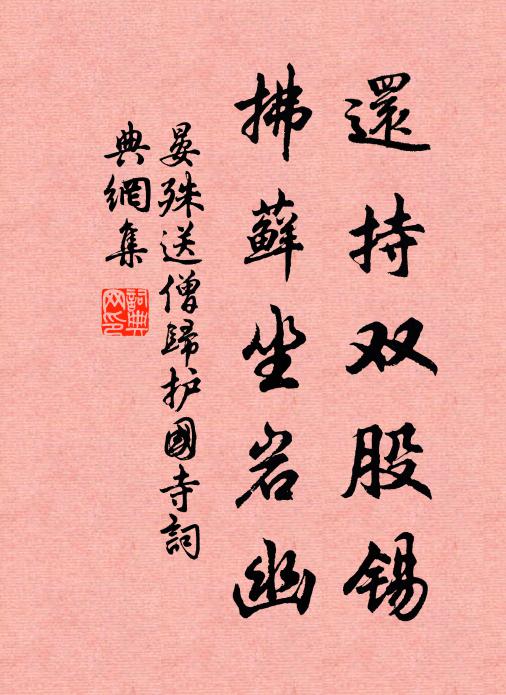 還持双股锡
拂藓坐岩幽
晏殊送僧歸护國寺詞
典網集
詞典
网印